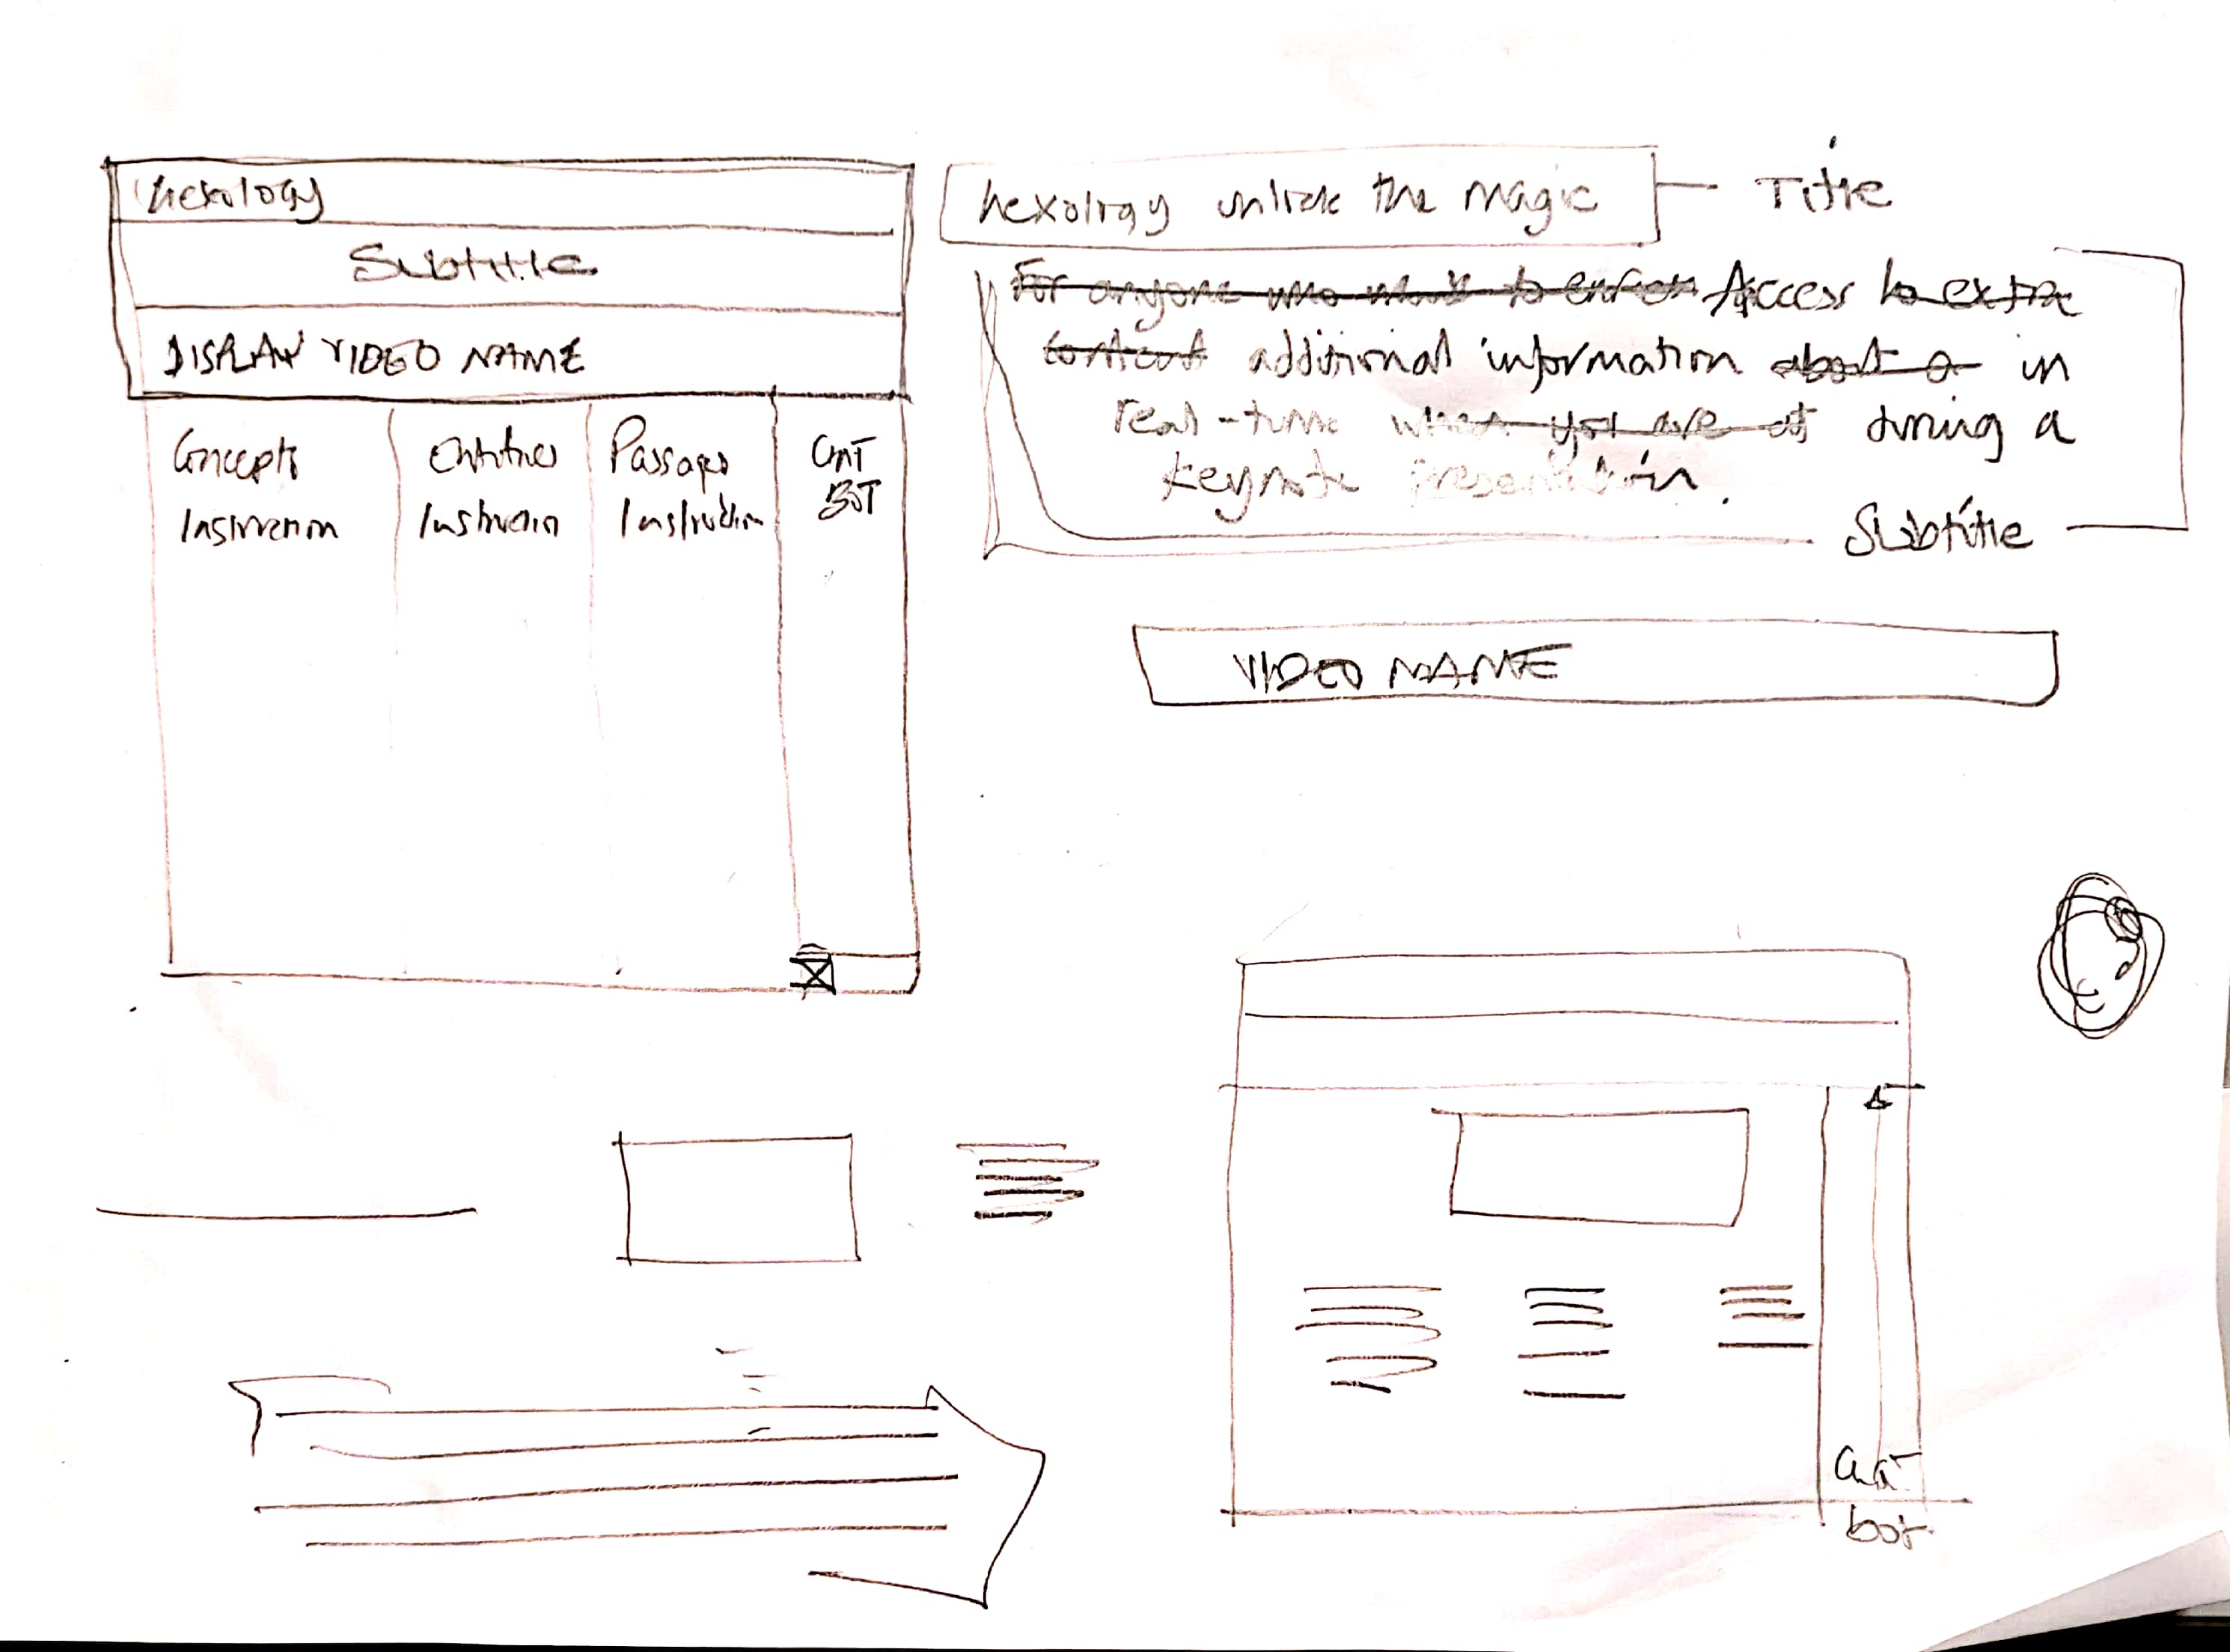 hexology
Subtitle
DISPLAY VIDEO NAME
Concepts
Instruction
Entities
Instruction
Passages
Instruction
CHAT
BOT
hexology unlock the magic
Title
For anyone who want to enrich Access to extra
content additional information about a in
real-time when you are at during a
keynote presentation.
Subtitle
VIDEO NAME
Chat
bot